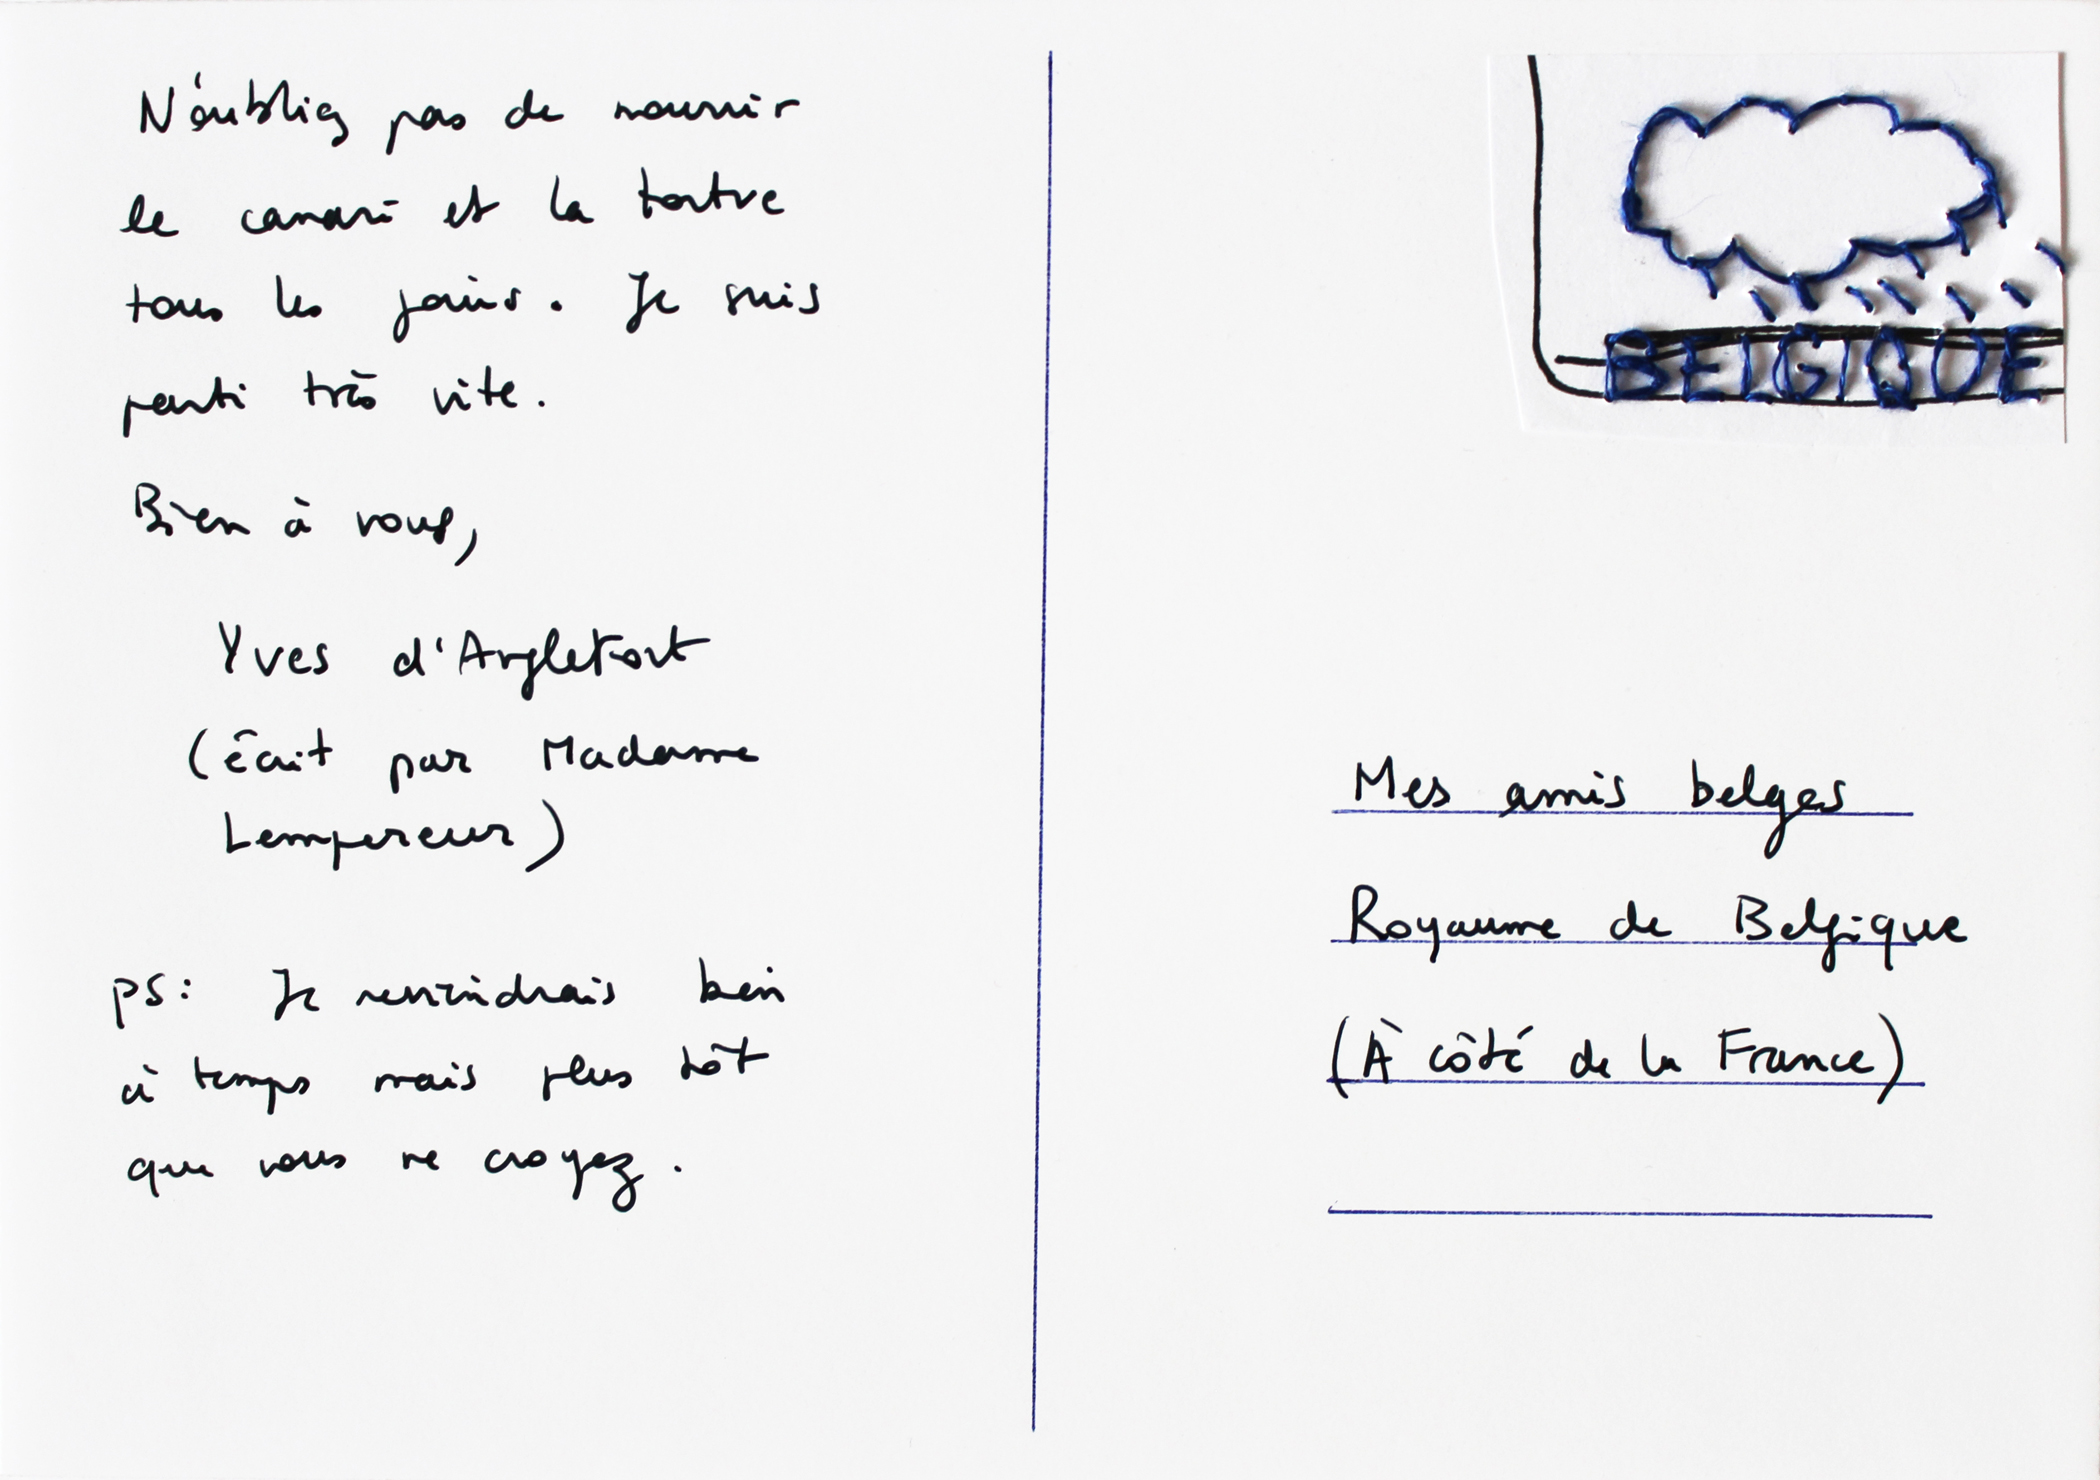 N'oubliez pas de nourrir
le canari et la tortue
tous les jours. Je suis
parti très vite.
Bien à vous,
Yves d'Angletort
(écrit par Madame
Lempereur)
ps: Je reviendrais bien
à temps mais plus tôt
que vous ne croyez.
BELGIQUE
Mes amis belges
Royaume de Belgique
(À côté de la France)